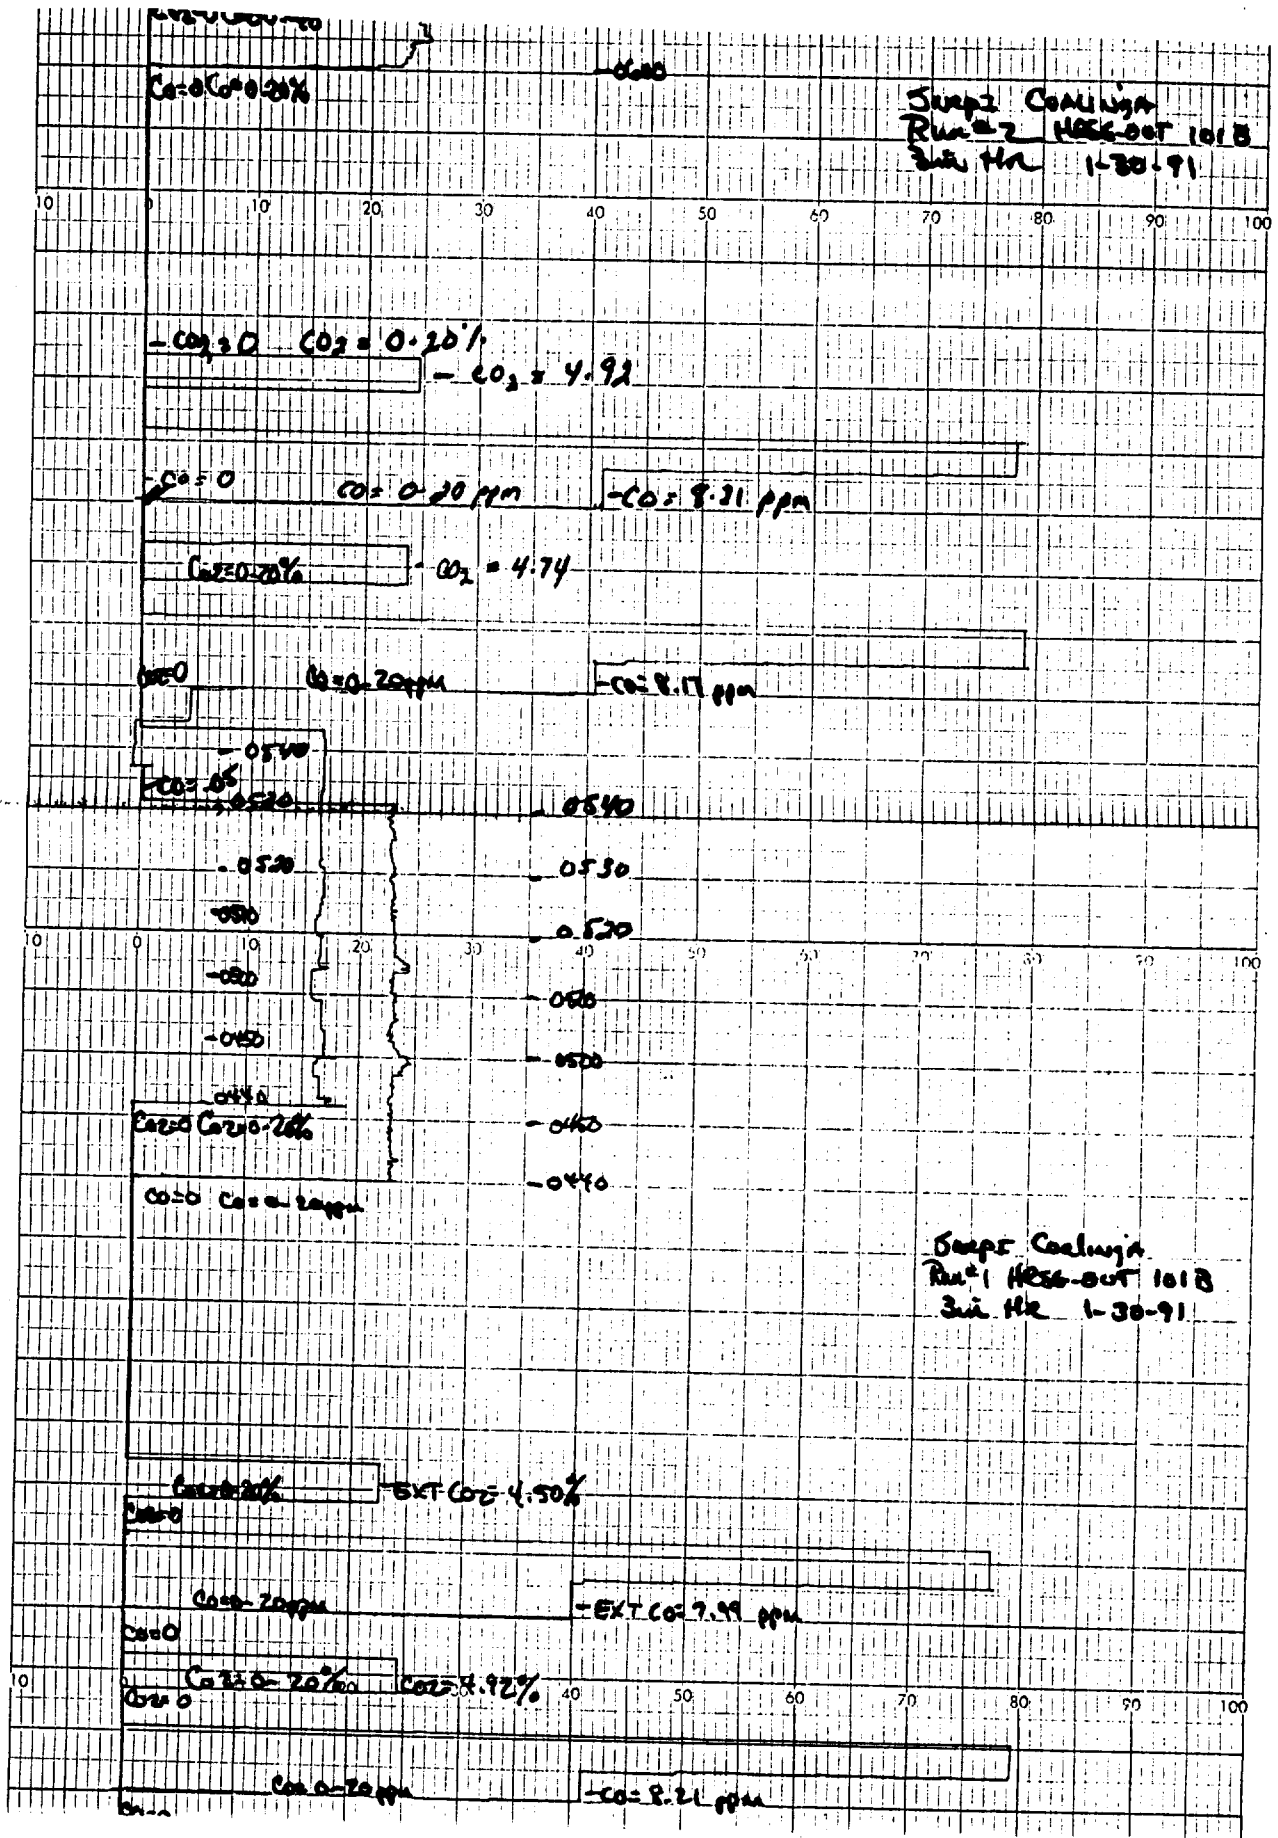 -0600
CO=0 CO=0-20%
Run #2 HRSG-OUT 101B
3rd HR 1-30-91
10 0 10 20 30 40 50 60 70 80 90 100
- CO2=0 CO2 = 0-20%
- CO2 = 4.92
- CO = 0 CO = 0-20 ppm -CO = 8.21 ppm
CO2=0-20% - CO2 = 4.74
CO=0 CO=0-20ppm -CO=8.17 ppm
- 0540
-CO=.05
- 0530 - 0540
- 0520 - 0530
-0510 - 0520
10 0 10 20 30 40 50 60 70 80 90 100
-0500 - 0510
-0450 - 0500
-0440 - 0450
CO2=0 CO2=0-20%
- 0440
CO=0 CO=0-20ppm
Coalinga
Run #1 HRSG-OUT 101B
3rd HR 1-30-91
CO2=0-20% -EXT CO2=4.50%
CO2=0
CO=0-20ppm -EXT CO=7.99 ppm
CO=0
CO2=0-20% CO2=4.92%
10 20 30 40 50 60 70 80 90 100
CO2=0
CO=0-20ppm -CO=8.21 ppm